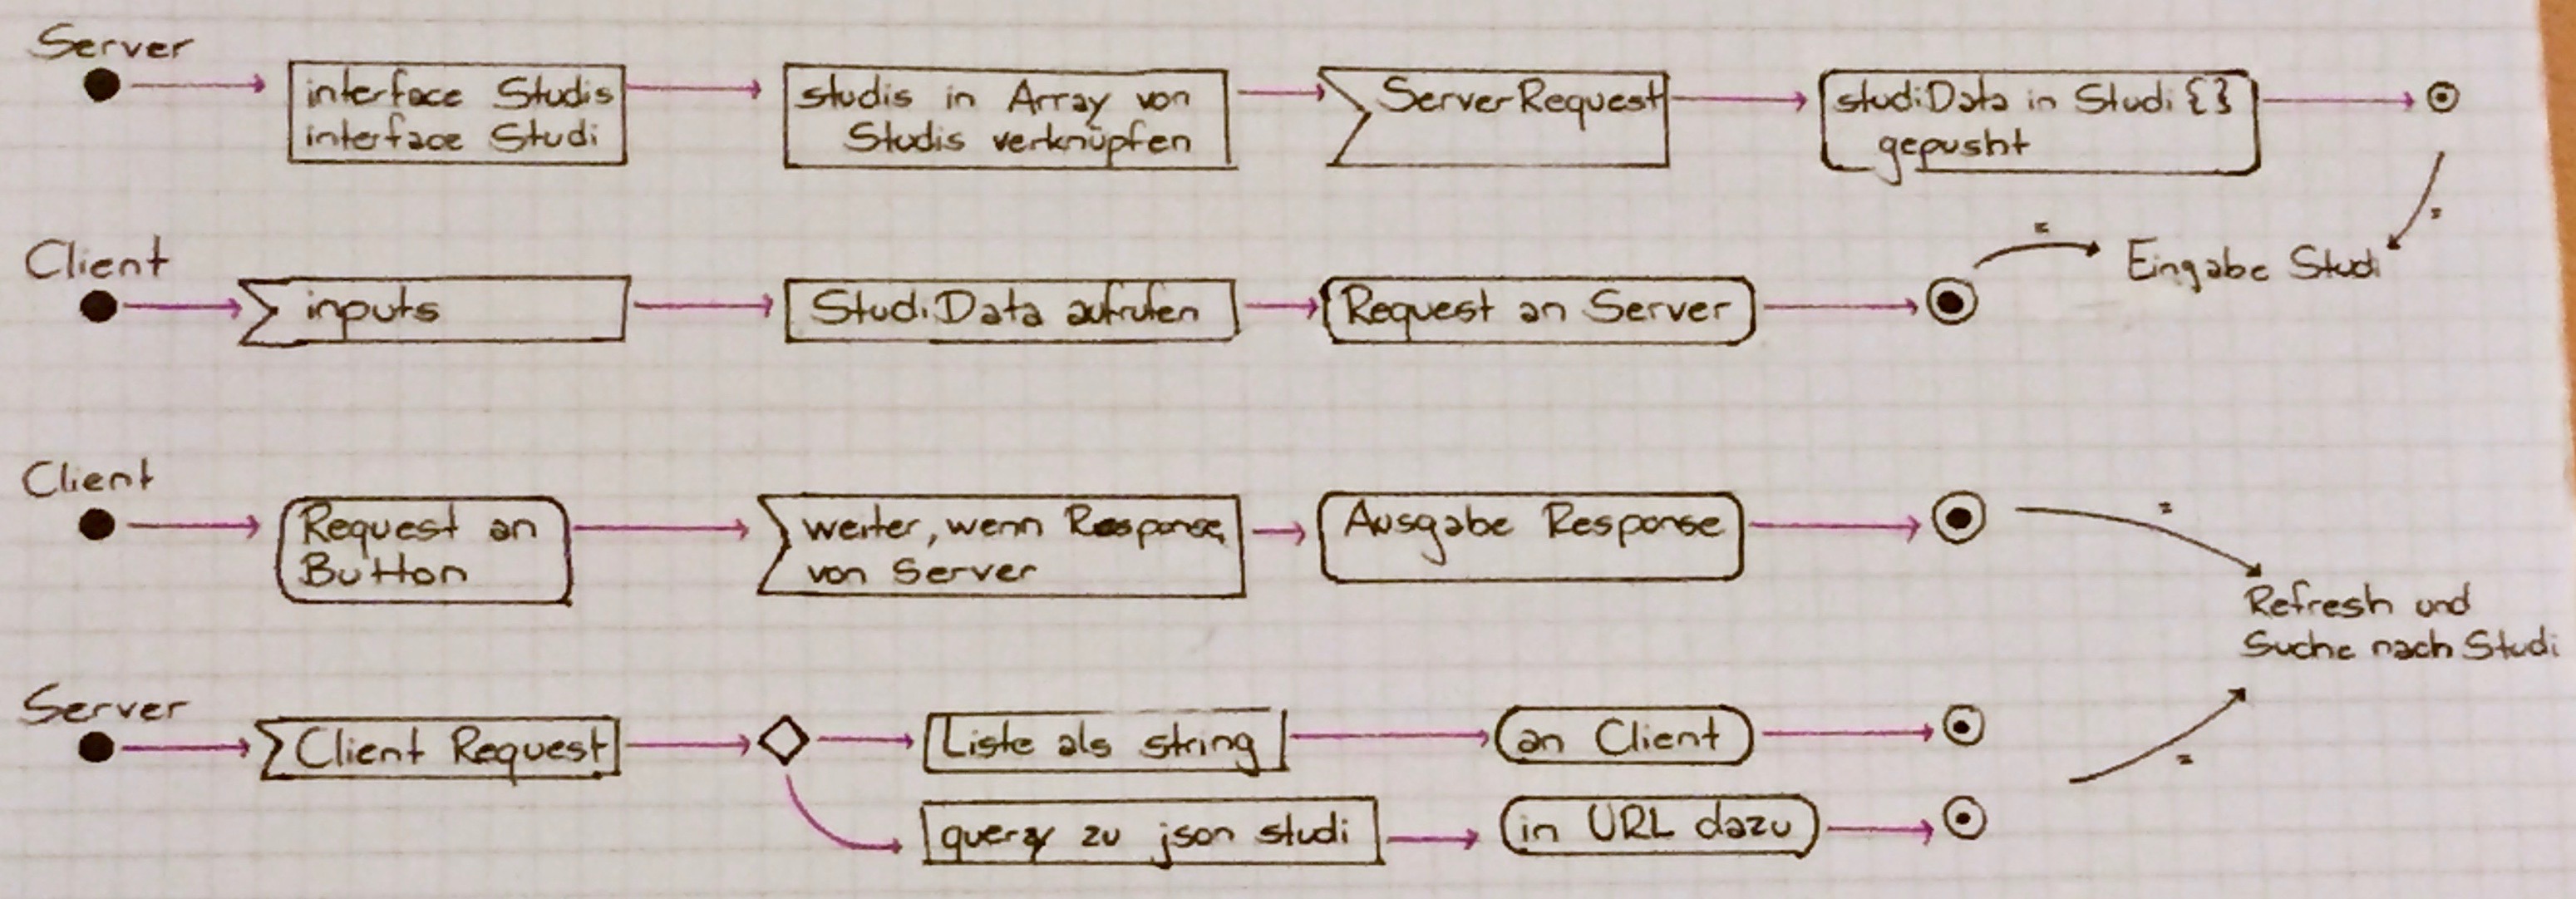 Server
interface Studis
interface Studi
studis in Array von
Studis verknüpfen
ServerRequest
studiData in Studi {}
gepusht
Client
inputs
StudiData aufrufen
Request an Server
=
=
Eingabe Studi
Client
Request an
Button
weiter, wenn Response
von Server
Ausgabe Response
=
Refresh und
Suche nach Studi
Server
Client Request
Liste als string
an Client
=
query zu json studi
in URL dazu